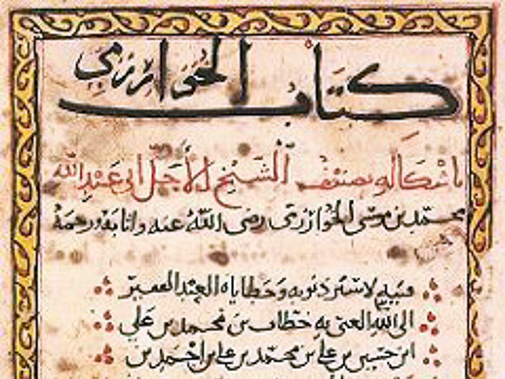 كتاب الخوارزمي
باشكاله تصنيف الشيخ الاجل ابي عبد الله
محمد بن موسى الخوارزمي رضى الله عنه واثابه رحمة
لاسير ذنوبه وخطاياه العبد الفقير
الى الله الغنى به خطاب بن محمد بن علي
ابن حسين بن علي بن محمد بن علي بن احمد بن